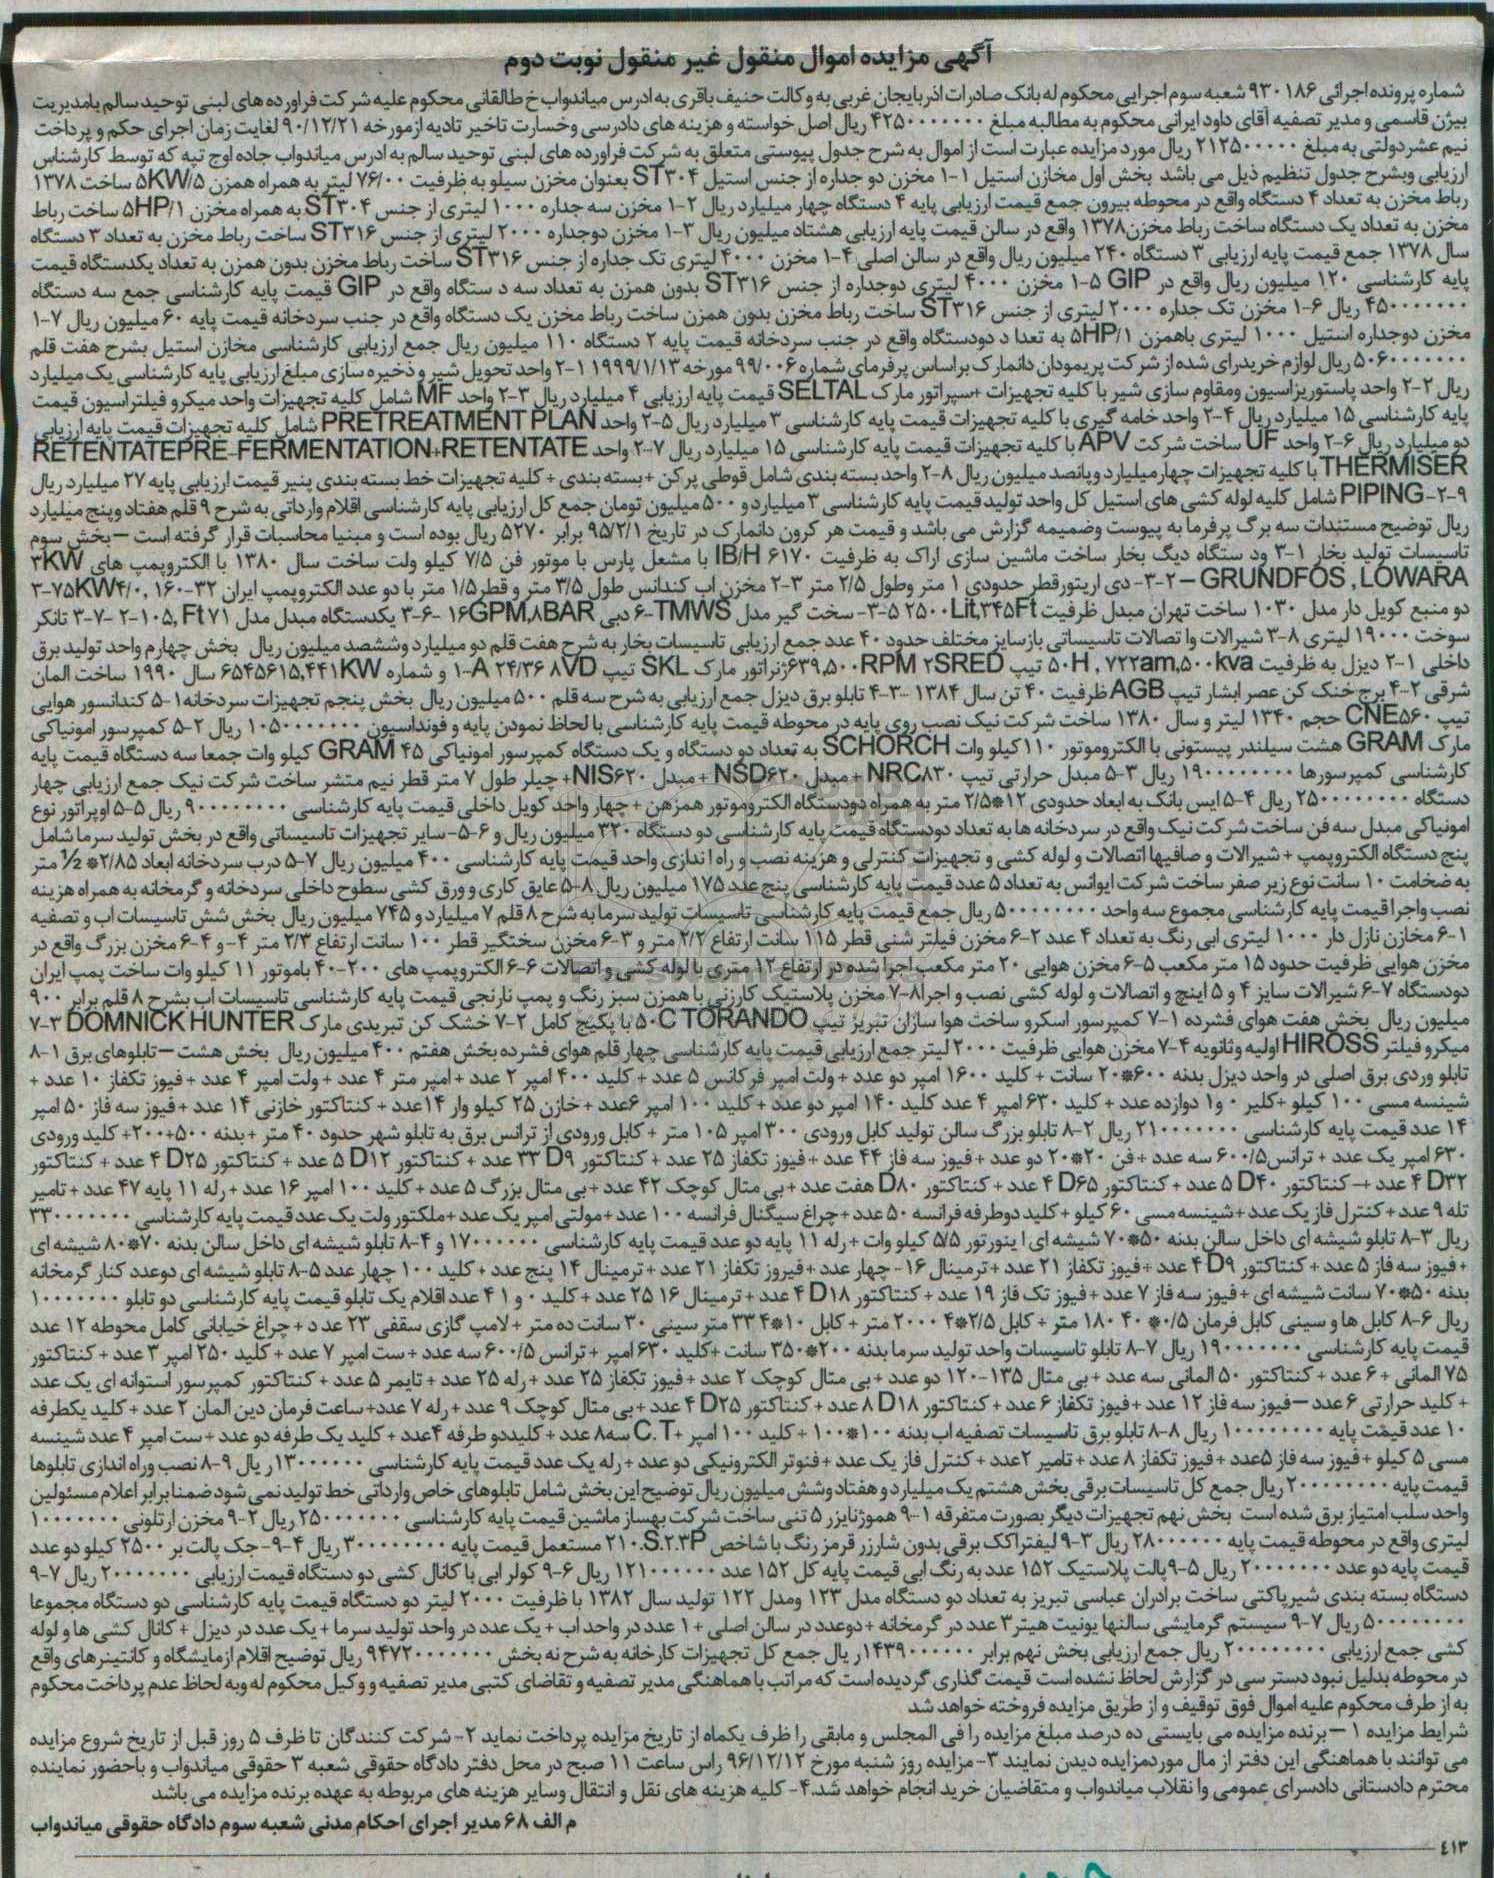 آگهی مزایده اموال منقول غیر منقول نوبت دوم
شماره پرونده اجرائی ۹۳۰۱۸۶ شعبه سوم اجرایی محکوم له بانک صادرات اذربایجان غربی به وکالت حنیف باقری به ادرس میاندواب خ طالقانی محکوم علیه شرکت فراورده های لبنی توحید سالم بامدیریت
بیژن قاسمی و مدیر تصفیه آقای داود ایرانی محکوم به مطالبه مبلغ ۴۲۵۰۰۰۰۰۰۰ ریال اصل خواسته و هزینه های دادرسی وخسارت تاخیر تادیه ازمورخه ۹۰/۱۲/۲۱ لغایت زمان اجرای حکم و پرداخت
نیم عشر دولتی به مبلغ ۲۱۲۵۰۰۰۰۰ ریال مورد مزایده عبارت است از اموال به شرح جدول پیوستی متعلق به شرکت فراورده های لبنی توحید سالم به ادرس میاندواب جاده اوج تپه که توسط کارشناس
ارزیابی وبشرح جدول تنظیم ذیل می باشد بخش اول مخازن استیل ۱-۱ مخزن دو جداره از جنس استیل ST۳۰۴ بعنوان مخزن سیلو به ظرفیت ۷۶/۰۰ لیتر به همراه همزن ۵KW/۵ ساخت ۱۳۷۸
رباط مخزن به تعداد ۴ دستگاه واقع در محوطه بیرون جمع قیمت ارزیابی پایه ۴ دستگاه چهار میلیارد ریال ۲-۱ مخزن سه جداره ۱۰۰۰ لیتری از جنس ST۳۰۴ به همراه مخزن ۵HP/۱ ساخت رباط
مخزن به تعداد یک دستگاه ساخت رباط مخزن۱۳۷۸ واقع در سالن قیمت پایه ارزیابی هشتاد میلیون ریال ۳-۱ مخزن دوجداره ۲۰۰۰ لیتری از جنس ST۳۱۶ ساخت رباط مخزن به تعداد ۳ دستگاه
سال ۱۳۷۸ جمع قیمت پایه ارزیابی ۳ دستگاه ۲۴۰ میلیون ریال واقع در سالن اصلی ۴-۱ مخزن ۴۰۰۰ لیتری تک جداره از جنس ST۳۱۶ ساخت رباط مخزن بدون همزن به تعداد یکدستگاه قیمت
پایه کارشناسی ۱۲۰ میلیون ریال واقع در GIP ۱-۵ مخزن ۴۰۰۰ لیتری دوجداره از جنس ST۳۱۶ بدون همزن به تعداد سه د ستگاه واقع در GIP قیمت پایه کارشناسی جمع سه دستگاه
۴۵۰۰۰۰۰۰۰ ریال ۶-۱ مخزن تک جداره ۲۰۰۰ لیتری از جنس ST۳۱۶ ساخت رباط مخزن بدون همزن ساخت رباط مخزن یک دستگاه واقع در جنب سردخانه قیمت پایه ۶۰ میلیون ریال ۷-۱
مخزن دوجداره استیل ۱۰۰۰ لیتری باهمزن ۵HP/۱ به تعدا د دودستگاه واقع در جنب سردخانه قیمت پایه ۲ دستگاه ۱۱۰ میلیون ریال جمع ارزیابی کارشناسی مخازن استیل بشرح هفت قلم
۵۰۶۰۰۰۰۰۰۰ ریال لوازم خریدرای شده از شرکت پریمودان دانمارک براساس پرفرمای شماره ۹۹/۰۰۶ مورخه ۱۹۹۹/۱/۱۳ ۱-۲ واحد تحویل شیر و ذخیره سازی مبلغ ارزیابی پایه کارشناسی یک میلیارد
ریال ۲-۲ واحد پاستوریزاسیون ومقاوم سازی شیر با کلیه تجهیزات +سپراتور مارک SELTAL قیمت پایه ارزیابی ۴ میلیارد ریال ۳-۲ واحد MF شامل کلیه تجهیزات واحد میکرو فیلتراسیون قیمت
پایه کارشناسی ۱۵ میلیارد ریال ۴-۲ واحد خامه گیری با کلیه تجهیزات قیمت پایه کارشناسی ۳ میلیارد ریال ۵-۲ واحد PRETREATMENT PLAN شامل کلیه تجهیزات قیمت پایه ارزیابی
دو میلیارد ریال ۶-۲ واحد UF ساخت شرکت APV با کلیه تجهیزات قیمت پایه کارشناسی ۱۵ میلیارد ریال ۷-۲ واحد RETENTATEPRE-FERMENTATION+RETENTATE
THERMISER با کلیه تجهیزات چهار میلیارد و پانصد میلیون ریال ۸-۲ واحد بسته بندی شامل قوطی پرکن +بسته بندی + کلیه تجهیزات خط بسته بندی پنیر قیمت ارزیابی پایه ۲۷ میلیارد ریال
۲-۹-PIPING شامل کلیه لوله کشی های استیل کل واحد تولید قیمت پایه کارشناسی ۳ میلیارد و ۵۰۰ میلیون تومان جمع کل ارزیابی پایه کارشناسی اقلام وارداتی به شرح ۹ قلم هفتاد وپنج میلیارد
ریال توضیح مستندات سه برگ پرفرما به پیوست وضمیمه گزارش می باشد و قیمت هر کرون دانمارک در تاریخ ۹۵/۲/۱ برابر ۵۲۷۰ ریال بوده است و مبنیا محاسبات قرار گرفته است –بخش سوم
تاسیسات تولید بخار ۱-۳ ود ستگاه دیگ بخار ساخت ماشین سازی اراک به ظرفیت IB/H ۶۱۷۰ با مشعل پارس با موتور فن ۷/۵ کیلو ولت ساخت سال ۱۳۸۰ با الکتروپمپ های ۳KW
GRUNDFOS , LOWARA –۲-۳- دی اریتورقطر حدودی ۱ متر وطول ۲/۵ متر ۳-۲ مخزن اب کندانس طول ۳/۵ متر و قطر ۱/۵ متر با دو عدد الکتروپمپ ایران ۳۲-۱۶۰ ,۷۵KW۴/۰-۳
دو منبع کویل دار مدل ۱۰۳۰ ساخت تهران مبدل ظرفیت ۲۵۰۰Lit,۳۴۵Ft ۳-۵- سخت گیر مدل TMWS-۶ دبی ۱۶GPM,۸BAR ۳-۶- یکدستگاه مبدل مدل ۷۱ ۱۰۵, Ft-۲-۷-۳ تانکر
سوخت ۱۹۰۰۰ لیتری ۸-۳ شیرالات وا تصالات تاسیساتی بازسایز مختلف حدود ۴۰ عدد جمع ارزیابی تاسیسات بخار به شرح هفت قلم دو میلیارد وششصد میلیون ریال بخش چهارم واحد تولید برق
داخلی ۱-۲ دیزل به ظرفیت ۵۰H , ۷۲۲am,۵۰۰kva تیپ ۶۳۹,۵۰۰RPM ۲SREDژنراتور مارک SKL تیپ ۸VD ۲۴/۳۶ A-۱ و شماره ۶۵۴۵۶۱۵,۴۴۱KW سال ۱۹۹۰ ساخت المان
شرقی ۲-۴ برج خنک کن عصر ابشار تیپ AGB ظرفیت ۴۰ تن سال ۱۳۸۴ –۳-۴ تابلو برق دیزل جمع ارزیابی به شرح سه قلم ۵۰۰ میلیون ریال بخش پنجم تجهیزات سردخانه۱-۵ کندانسور هوایی
تیپ CNE۵۶۰ حجم ۱۳۴۰ لیتر و سال ۱۳۸۰ ساخت شرکت نیک نصب روی پایه در محوطه قیمت پایه کارشناسی با لحاظ نمودن پایه و فونداسیون ۱۰۵۰۰۰۰۰۰۰ ریال ۲-۵ کمپرسور امونیاکی
مارک GRAM هشت سیلندر پیستونی با الکتروموتور ۱۱۰ کیلو وات SCHORCH به تعداد دو دستگاه و یک دستگاه کمپرسور امونیاکی GRAM ۴۵ کیلو وات جمعا سه دستگاه قیمت پایه
کارشناسی کمپرسورها ۱۹۰۰۰۰۰۰۰۰ ریال ۳-۵ مبدل حرارتی تیپ NRC۸۳۰ + مبدل NSD۶۲۰ + مبدل NIS۶۲۰+ چیلر طول ۷ متر قطر نیم متشر ساخت شرکت نیک جمع ارزیابی چهار
دستگاه ۲۵۰۰۰۰۰۰۰۰ ریال ۴-۵ ایس بانک به ابعاد حدودی ۱۲*۲/۵ متر به همراه دودستگاه الکتروموتور همزهن + چهار واحد کویل داخلی قیمت پایه کارشناسی ۹۰۰۰۰۰۰۰۰ ریال ۵-۵ اوپراتور نوع
امونیاکی مبدل سه فن ساخت شرکت نیک واقع در سردخانه ها به تعداد دودستگاه قیمت پایه کارشناسی دو دستگاه ۳۲۰ میلیون ریال و ۶-۵- سایر تجهیزات تاسیساتی واقع در بخش تولید سرما شامل
پنج دستگاه الکتروپمپ + شیرالات و صافیها اتصالات و لوله کشی و تجهیزات کنترلی و هزینه نصب و راه اندازی واحد قیمت پایه کارشناسی ۴۰۰ میلیون ریال ۷-۵ درب سردخانه ابعاد ۲/۸۵* ½ متر
به ضخامت ۱۰ سانت نوع زیر صفر ساخت شرکت ایوانس به تعداد ۵ عدد قیمت پایه کارشناسی پنج عدد ۱۷۵ میلیون ریال ۸-۵ عایق کاری و ورق کشی سطوح داخلی سردخانه و گرمخانه به همراه هزینه
نصب واجرا قیمت پایه کارشناسی مجموع سه واحد ۵۰۰۰۰۰۰۰۰ ریال جمع قیمت پایه کارشناسی تاسیسات تولید سرما به شرح ۸ قلم ۷ میلیارد و ۷۴۵ میلیون ریال بخش شش تاسیسات اب و تصفیه
۱-۶ مخازن نازل دار ۱۰۰۰ لیتری ابی رنگ به تعداد ۴ عدد ۲-۶ مخزن فیلتر شنی قطر ۱۱۵ سانت ارتفاع ۲/۲ متر و ۳-۶ مخزن سختگیر قطر ۱۰۰ سانت ارتفاع ۲/۳ متر ۴- و ۴-۶ مخزن بزرگ واقع در
مخزن هوایی ظرفیت حدود ۱۵ متر مکعب ۵-۶ مخزن هوایی ۲۰ متر مکعب اجرا شده در ارتفاع ۱۲ متری با لوله کشی و اتصالات ۶-۶ الکتروپمپ های ۲۰۰-۴۰ باموتور ۱۱ کیلو وات ساخت پمپ ایران
دودستگاه ۷-۶ شیرالات سایز ۴ و ۵ اینچ و اتصالات و لوله کشی نصب و اجرا۸-۷ مخزن پلاستیک کارزنی با همزن سبز رنگ و پمپ نارنجی قیمت پایه کارشناسی تاسیسات اب بشرح ۸ قلم برابر ۹۰۰
میلیون ریال بخش هفت هوای فشرده ۱-۷ کمپرسور اسکرو ساخت هوا سازان تبریز تیپ ۵۰C TORANDO با پکیج کامل ۲-۷ خشک کن تبریدی مارک DOMNICK HUNTER ۷-۳
میکرو فیلتر HIROSS اولیه وثانویه ۴-۷ مخزن هوایی ظرفیت ۲۰۰۰ لیتر جمع ارزیابی قیمت پایه کارشناسی چهار قلم هوای فشرده بخش هفتم ۴۰۰ میلیون ریال بخش هشت –تابلوهای برق ۱-۸
تابلو وردی برق اصلی در واحد دیزل بدنه ۶۰۰*۲۰ سانت + کلید ۱۶۰۰ امپر دو عدد + ولت امپر فرکانس ۵ عدد + کلید ۴۰۰ امپر ۲ عدد + امپر متر ۴ عدد + ولت امپر ۴ عدد + فیوز تکفاز ۱۰ عدد +
شینسه مسی ۱۰۰ کیلو +کلیر ۰ و۱ دوازده عدد + کلید ۶۳۰ امپر ۴ عدد کلید ۱۴۰ امپر دو عدد + کلید ۱۰۰ امپر ۶عدد + خازن ۲۵ کیلو وار ۱۴عدد + کنتاکتور خازنی ۱۴ عدد +فیوز سه فاز ۵۰ امپر
۱۴ عدد قیمت پایه کارشناسی ۲۱۰۰۰۰۰۰۰ ریال ۲-۸ تابلو بزرگ سالن تولید کابل ورودی ۳۰۰ امپر ۱۰۵ متر + کابل ورودی از ترانس برق به تابلو شهر حدود ۴۰ متر +بدنه ۵۰۰+۲۰۰+ کلید ورودی
۶۳۰ امپر یک عدد + ترانس۶۰۰/۵ سه عدد + فن ۲۰*۲۰ دو عدد + فیوز سه فاز ۴۴ عدد +فیوز تکفاز ۲۵ عدد + کنتاکتور D۹ ۳۳ عدد + کنتاکتور D۱۲ ۵ عدد + کنتاکتور D۲۵ ۴ عدد + کنتاکتور
D۳۲ ۴ عدد +- کنتاکتور D۴۰ ۵ عدد + کنتاکتور D۶۵ ۴ عدد + کنتاکتور D۸۰ هفت عدد +بی متال کوچک ۴۲ عدد +بی متال بزرگ ۵ عدد + کلید ۱۰۰ امپر ۱۶ عدد + رله ۱۱ پایه ۴۷ عدد + تامیر
تله ۹ عدد + کنترل فاز یک عدد +شینسه مسی ۶۰ کیلو +کلید دوطرفه فرانسه ۵۰ عدد +چراغ سیگنال فرانسه ۱۰۰ عدد +مولتی امپر یک عدد +ملکتور ولت یک عدد قیمت پایه کارشناسی ۳۳۰۰۰۰۰۰۰
ریال ۳-۸ تابلو شیشه ای داخل سالن بدنه ۵۰*۷۰ شیشه ای ا ینورتور ۵/۵ کیلو وات + رله ۱۱ پایه دو عدد قیمت پایه کارشناسی ۱۷۰۰۰۰۰۰ و ۴-۸ تابلو شیشه ای داخل سالن بدنه ۷۰*۸۰ شیشه ای
+ فیوز سه فاز ۵ عدد + کنتاکتور D۹ ۴ عدد +فیوز تکفاز ۲۱ عدد +ترمینال ۱۶- چهار عدد +فیروز تکفاز ۲۱ عدد +ترمینال ۱۴ پنج عدد + کلید ۱۰۰ چهار عدد ۵-۸ تابلو شیشه ای دوعدد کنار گرمخانه
بدنه ۵۰*۷۰ سانت شیشه ای +فیوز سه فاز ۷ عدد +فیوز تک فاز ۱۹ عدد + کنتاکتور D۱۸ ۴ عدد +ترمینال ۱۶ ۲۵ عدد + کلید ۰ و ۱ ۴ عدد اقلام یک تابلو قیمت پایه کارشناسی دو تابلو ۱۰۰۰۰۰۰۰
ریال ۶-۸ کابل ها و سینی کابل فرمان ۰/۵*۴۰ ۱۸۰ متر + کابل ۲/۵*۴ ۲۰۰۰ متر + کابل ۱۰*۴ ۳۳ متر سینی ۳۰ سانت ده متر + لامپ گازی سقفی ۲۳ عد د + چراغ خیابانی کامل محوطه ۱۲ عدد
قیمت پایه کارشناسی ۱۹۰۰۰۰۰۰۰ ریال ۷-۸ تابلو تاسیسات واحد تولید سرما بدنه ۲۰۰*۳۵۰ سانت +کلید ۶۳۰ امپر + ترانس ۶۰۰/۵ سه عدد +ست امپر ۷ عدد + کلید ۲۵۰ امپر ۳ عدد + کنتاکتور
۷۵ المانی + ۶ عدد + کنتاکتور ۵۰ المانی سه عدد +بی متال ۱۳۵-۱۲۰ دو عدد +بی متال کوچک ۲ عدد +فیوز تکفاز ۲۵ عدد + رله ۲۵ عدد + تایمر ۵ عدد + کنتاکتور کمپرسور استوانه ای یک عدد
+ کلید حرارتی ۶ عدد –فیوز سه فاز ۱۲ عدد +فیوز تکفاز ۶ عدد + کنتاکتور D۱۸ ۸ عدد + کنتاکتور D۲۵ ۴ عدد +بی متال کوچک ۹ عدد + رله ۷ عدد+ساعت فرمان دین المان ۲ عدد + کلید یکطرفه
۱۰ عدد قیمت پایه ۱۰۰۰۰۰۰۰۰ ریال ۸-۸ تابلو برق تاسیسات تصفیه اب بدنه ۱۰۰*۱۰۰ + کلید ۱۰۰ امپر +C.T سه۸ عدد + کلیددو طرفه ۴عدد + کلید یک طرفه دو عدد +ست امپر ۴ عدد شینسه
مسی ۵ کیلو +فیوز سه فاز ۵عدد +فیوز تکفاز ۸ عدد + تامیر ۲عدد + کنترل فاز یک عدد +فنوتر الکترونیکی دو عدد + رله یک عدد قیمت پایه کارشناسی ۱۳۰۰۰۰۰۰ر یال ۹-۸ نصب وراه اندازی تابلوها
قیمت پایه ۲۰۰۰۰۰۰۰۰ ریال جمع کل تاسیسات برقی بخش هشتم یک میلیارد و هفتاد وشش میلیون ریال توضیح این بخش شامل تابلوهای خاص وارداتی خط تولید نمی شود ضمنا برابر اعلام مسئولین
واحد سلب امتیاز برق شده است بخش نهم تجهیزات دیگر بصورت متفرقه ۱-۹ هموژنایزر ۵ تنی ساخت شرکت بهساز ماشین قیمت پایه کارشناسی ۲۵۰۰۰۰۰۰۰ ریال ۲-۹ مخزن ارتلونی ۱۰۰۰۰۰۰۰
لیتری واقع در محوطه قیمت پایه ۲۸۰۰۰۰۰۰ ریال ۳-۹ لیفتراکک برقی بدون شارزر قرمز رنگ با شاخص ۲۱۰.S.۲.۳P مستعمل قیمت پایه ۳۰۰۰۰۰۰۰۰ ریال ۴-۹- جک پالت بر ۲۵۰۰ کیلو دو عدد
قیمت پایه دو عدد ۲۰۰۰۰۰۰۰ ریال ۵-۹پالت پلاستیک ۱۵۲ عدد به رنگ ابی قیمت پایه کل ۱۵۲ عدد ۱۲۱۰۰۰۰۰۰ ریال ۶-۹ کولر ابی با کانال کشی دو دستگاه قیمت ارزیابی ۲۰۰۰۰۰۰۰ ریال ۷-۹
دستگاه بسته بندی شیر پاکتی ساخت برادران عباسی تبریز به تعداد دو دستگاه مدل ۱۲۳ ومدل ۱۲۲ تولید سال ۱۳۸۲ با ظرفیت ۲۰۰۰ لیتر دو دستگاه قیمت پایه کارشناسی دو دستگاه مجموعا
۵۰۰۰۰۰۰۰۰ ریال ۷-۹ سیستم گرمایشی سالنها یونیت هیتر۳ عدد در گرمخانه +دوعدد در سالن اصلی + ۱ عدد در واحد اب + یک عدد در واحد تولید سرما + یک عدد در دیزل + کانال کشی ها و لوله
کشی جمع ارزیابی ۲۰۰۰۰۰۰۰۰ ریال جمع ارزیابی بخش نهم برابر ۱۴۳۹۰۰۰۰۰۰ر یال جمع کل تجهیزات کارخانه به شرح نه بخش ۹۴۷۲۰۰۰۰۰۰۰ ریال توضیح اقلام ازمایشگاه و کانتینرهای واقع
در محوطه بدلیل نبود دستر سی در گزارش لحاظ نشده است قیمت گذاری گردیده است که مراتب با هماهنگی مدیر تصفیه و تقاضای کتبی مدیر تصفیه و وکیل محکوم له وبه لحاظ عدم پرداخت محکوم
به از طرف محکوم علیه اموال فوق توقیف و از طریق مزایده فروخته خواهد شد
شرایط مزایده ۱ –برنده مزایده می بایستی ده درصد مبلغ مزایده را فی المجلس و مابقی را ظرف یکماه از تاریخ مزایده پرداخت نماید ۲- شرکت کنندگان تا ظرف ۵ روز قبل از تاریخ شروع مزایده
می توانند با هماهنگی این دفتر از مال موردمزایده دیدن نمایند ۳- مزایده روز شنبه مورخ ۹۶/۱۲/۱۲ راس ساعت ۱۱ صبح در محل دفتر دادگاه حقوقی شعبه ۳ حقوقی میاندواب و باحضور نماینده
محترم دادستانی دادسرای عمومی وا نقلاب میاندواب و متقاضیان خرید انجام خواهد شد.۴- کلیه هزینه های نقل و انتقال وسایر هزینه های مربوطه به عهده برنده مزایده می باشد
م الف ۶۸ مدیر اجرای احکام مدنی شعبه سوم دادگاه حقوقی میاندواب
۴۱۳